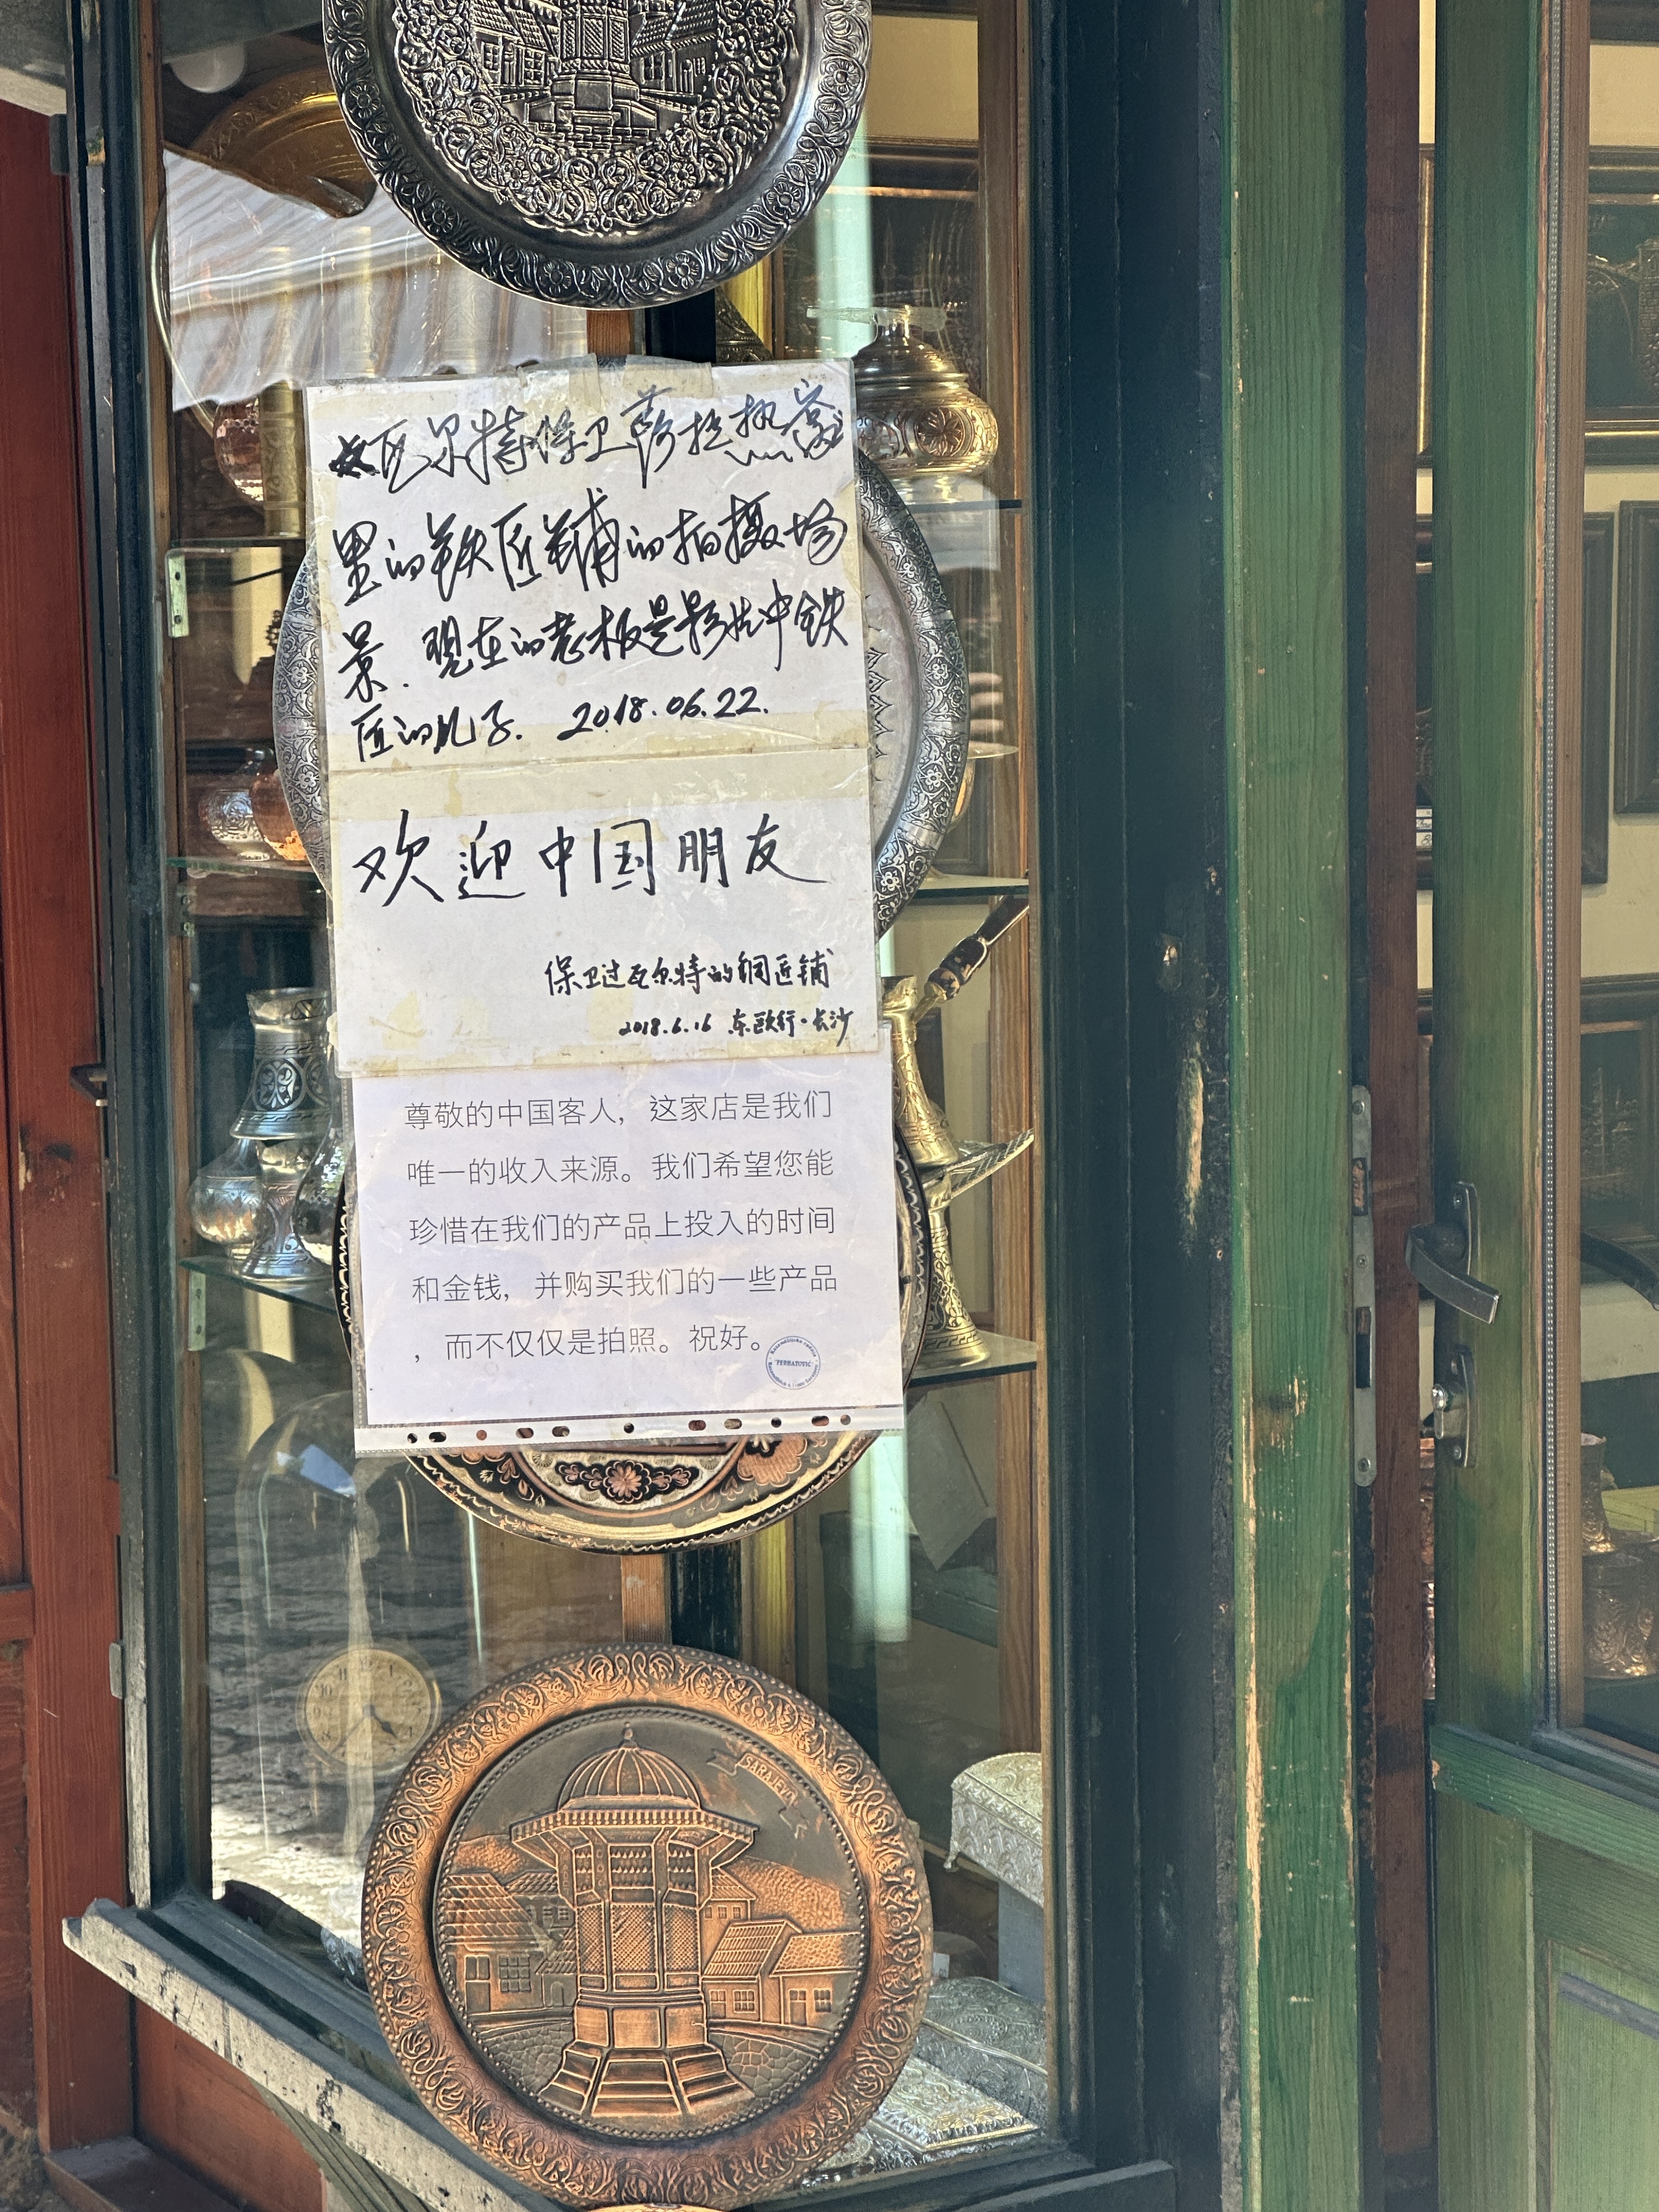 瓦尔特保卫萨拉热窝
里的铁匠铺的拍摄场
景.现在的老板是影片中铁
匠的儿子. 2018.06.22.
欢迎中国朋友
保卫过瓦尔特的铜匠铺
2018.6.16 东欧行·长沙
尊敬的中国客人，这家店是我们
唯一的收入来源。我们希望您能
珍惜在我们的产品上投入的时间
和金钱，并购买我们的一些产品
，而不仅仅是拍照。祝好。
SARAJEVO